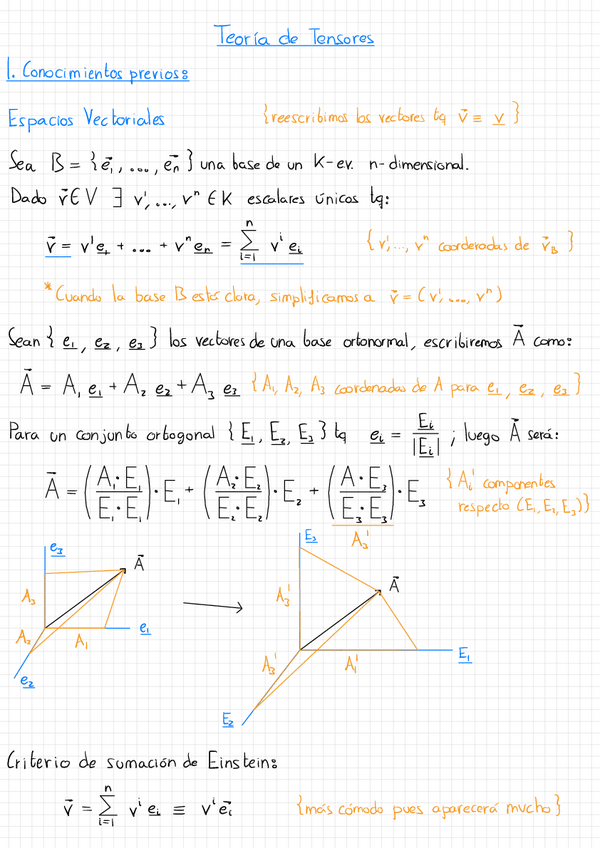 Teoría de Tensores
1. Conocimientos previos:
Espacios Vectoriales {reescribimos los vectores tq v⃗ ≡ v̲ }
Sea B = {e⃗₁, ..., e⃗ₙ} una base de un K-ev. n-dimensional.
Dado v⃗ ∈ V ∃ v¹, ..., vⁿ ∈ K escalares únicos tq:
v⃗ = v¹e̲₁ + ... + vⁿe̲ₙ = Σ_{i=1}^{n} vⁱ e̲ᵢ {v¹, ..., vⁿ coordenadas de v⃗_B }
*Cuando la base B está clara, simplificamos a v⃗ = (v¹, ..., vⁿ)
Sean { e̲₁, e̲₂, e̲₃ } los vectores de una base ortonormal, escribiremos A⃗ como:
A⃗ = A₁ e̲₁ + A₂ e̲₂ + A₃ e̲₃ {A₁, A₂, A₃ coordenadas de A para e̲₁, e̲₂, e̲₃ }
Para un conjunto ortogonal { E̲₁, E̲₂, E̲₃ } tq e̲ᵢ = E̲ᵢ / |E̲ᵢ| ; luego A⃗ será:
A⃗ = (A·E₁ / E₁·E₁)·E₁ + (A·E₂ / E₂·E₂)·E₂ + (A·E₃ / E₃·E₃)·E₃ { Aᵢ' componentes
respecto (E₁, E₂, E₃)}
A₃'
e̲₃
A⃗
A₃
A₂
A₁
e̲₁
e̲₂
E̲₃
A⃗
A₃'
A₃'
A₁'
E̲₁
E̲₂
Criterio de sumación de Einstein:
v⃗ = Σ_{i=1}^{n} vⁱ e̲ᵢ ≡ vⁱ e⃗ᵢ {más cómodo pues aparecerá mucho}